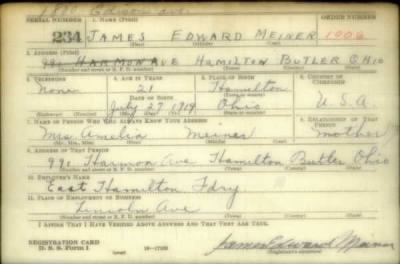 1880 Edison Ave.
SERIAL NUMBER 1. NAME (Print) ORDER NUMBER
234 JAMES EDWARD MEINER 1906
(First) (Middle) (Last)
2. ADDRESS (Print)
991 HARMON AVE HAMILTON BUTLER OHIO
(Number and street or R. F. D. number) (Town) (County) (State)
3. TELEPHONE 4. AGE IN YEARS 5. PLACE OF BIRTH 6. COUNTRY OF CITIZENSHIP
None 21 Hamilton
DATE OF BIRTH (Town or county)
July 27 1919 Ohio U.S.A.
(Exchange) (Number) (Mo.) (Day) (Yr.) (State or country)
7. NAME OF PERSON WHO WILL ALWAYS KNOW YOUR ADDRESS 8. RELATIONSHIP OF THAT PERSON
Mrs. Amelia Meiner Mother
(Mr., Mrs., Miss) (First) (Middle) (Last)
9. ADDRESS OF THAT PERSON
991 Harmon Ave Hamilton Butler Ohio
(Number and street or R. F. D. number) (Town) (County) (State)
10. EMPLOYER'S NAME
East Hamilton Fdry
11. PLACE OF EMPLOYMENT OR BUSINESS
Lincoln Ave
(Number and street or R. F. D. number) (Town) (County) (State)
I AFFIRM THAT I HAVE VERIFIED ABOVE ANSWERS AND THAT THEY ARE TRUE.
REGISTRATION CARD
D. S. S. Form 1 (over) James Edward Meiner
(Registrant's signature)